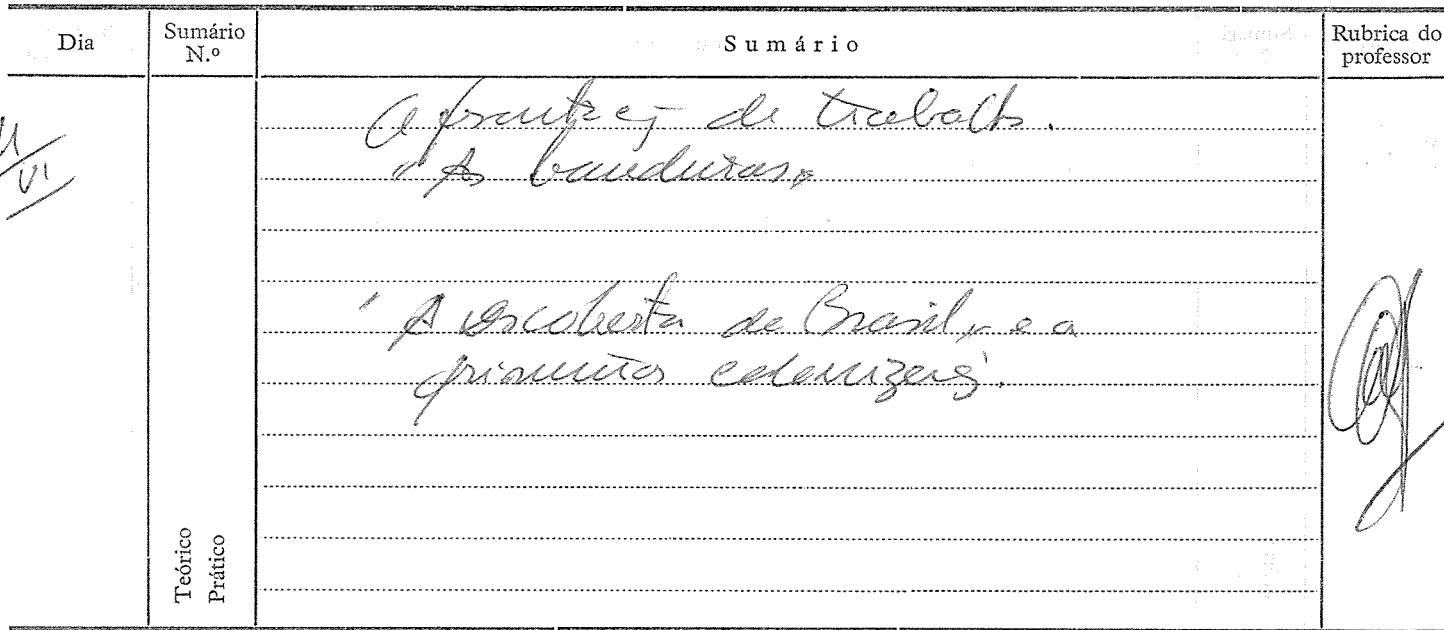 Dia
Sumário
N.º
Sumário
Rubrica do
professor
VI
Apresentação de trabalhos.
"As bandeiras"
"A descoberta do Brasil" e a
primeira colonização.
Teórico
Prático